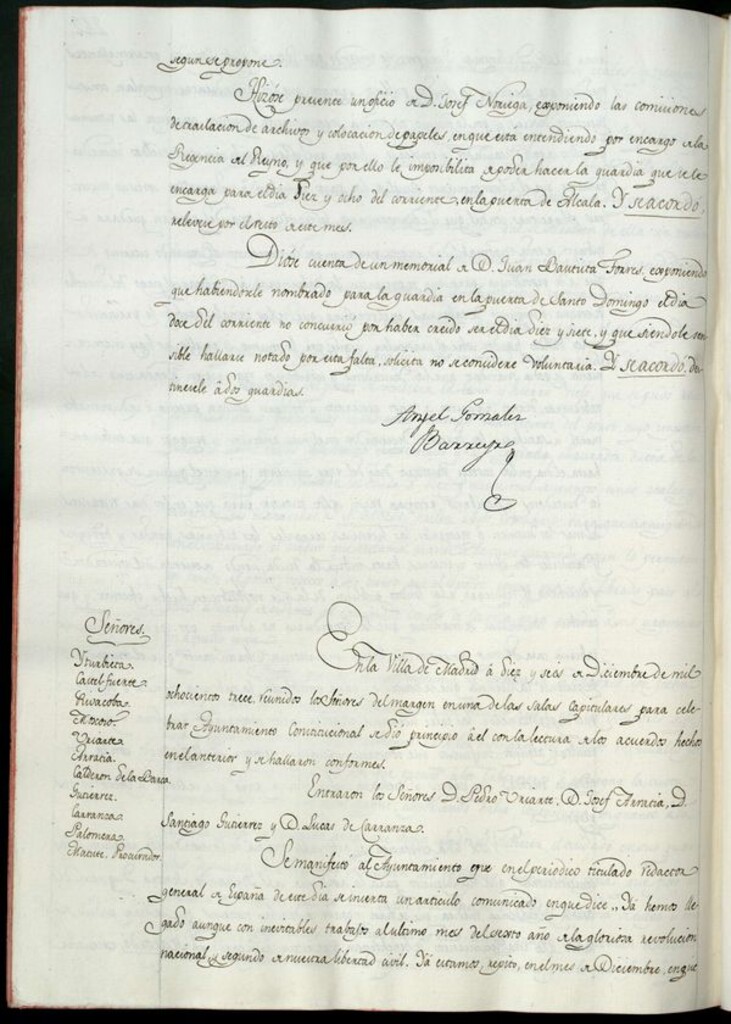 segun se propone.
Hizose presente un oficio de D. Josef Noriega, exponiendo las comisiones
de traslacion de archivos y colocacion de papeles, en que está entendiendo por encargo de la
Regencia del Reyno, y que por ello le imposibilita de poder hacer la guardia que se le
encarga para el dia Diez y ocho del corriente, en la puerta de Alcala. Y se acordó,
relevese por el resto de este mes.
Dióse cuenta de un memorial de D. Juan Bautista Torres, exponiendo
que habiendosele nombrado para la guardia en la puerta de Santo Domingo el dia
doce del corriente no concurrió por haber creido ser el dia diez y siete, y que siendole sen-
sible hallarse notado por esta falta, solicita no se considere voluntaria. Y se acordó, des-
tinesele á dos guardias.
Angel Gonzalez
Barreyro
Señores.
Yturbieta.
Castelfuerte.
Rivacoba.
Moscoso.
Uriarte.
Arratia.
Calderon de la Barca.
Gutierrez.
Carranza.
Palomera.
Matute. Procurador.
En la Villa de Madrid á diez y seis de Diciembre de mil
ochocientos trece, reunidos los Señores del margen en una de las salas Capitulares para cele-
brar Ayuntamiento Constitucional se dió principio á el con la lectura de los acuerdos hechos
en el anterior y se hallaron conformes.
Entraron los Señores D. Pedro Uriarte, D. Josef Arratia, D.
Santiago Gutierrez y D. Lucas de Carranza.
Se manifestó al Ayuntamiento que en el periodico titulado redactor
general de España de este dia se inserta un articulo comunicado en que dice „Yá hemos lle-
gado aunque con inevitables trabajos al ultimo mes del sexto año de la gloriosa revolucion
nacional, y segundo de nuestra libertad civil. Yá estamos, repito, en el mes de Diciembre, en que